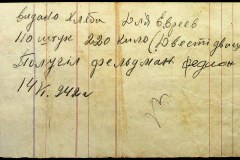 Видано хлеба для евреев
110 штук 220 кило (двести двадц
Получил фельдман
14/VI. 942 г